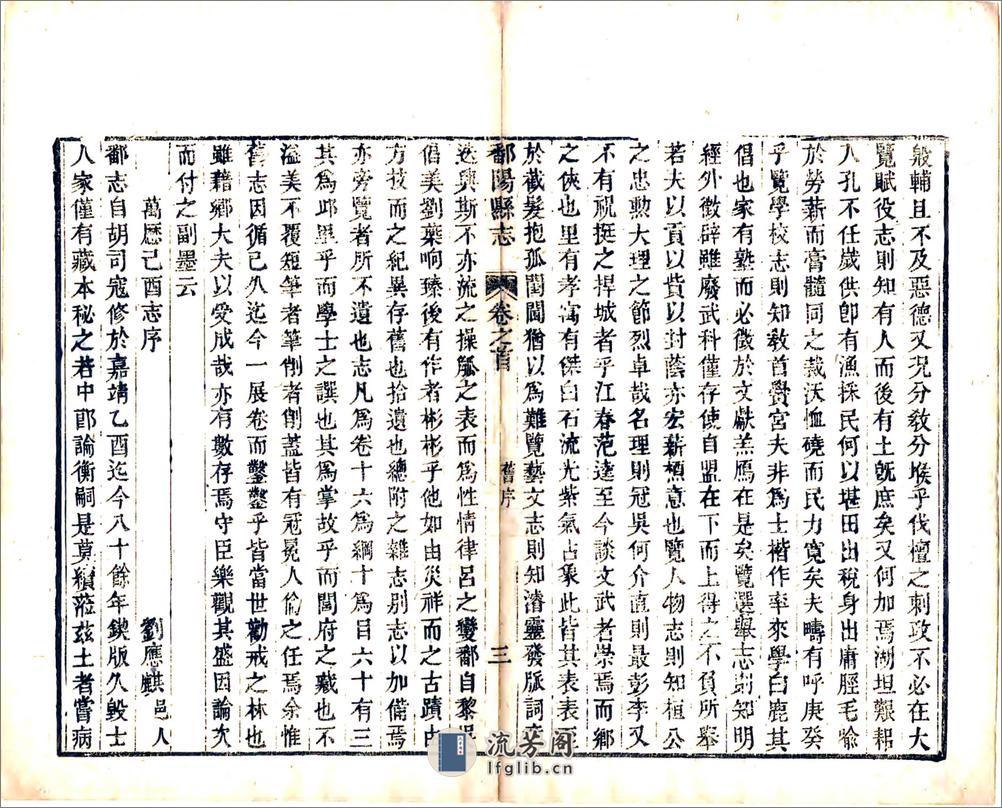 般輔且不及惡德又況分敎分堠乎伐檀之刺政不必在大
覽賦役志則知有人而後有土旣庶矣又何加焉湖坦艱帮
人孔不任歲供卽有漁採民何以堪田出稅身出庸脛毛喻
於勞薪而膏髓同之裁沃恤磽而民力寬矣夫疇有呼庚癸
乎覽學校志則知敎首黌宮夫非爲士楷作率來學白鹿其
倡也家有塾而必徵於文獻羔雁在是矣覽選舉志則知明
經外徵辟雖廢武科僅存使自盟在下而上得之不負所舉
若夫以貢以貲以封蔭亦宏薪槱意也覽人物志則知桓公
之忠勲大理之節烈卓哉名理則冠吳何介直則最彭李又
不有視挺之捍城者乎江春范逵至今談文武者崇焉而鄉
之俠也里有孝寓有傑白石流光紫氣占象此皆其表表至
於截髮抱孤閨閫猶以爲難覽藝文志則知濬靈發脈詞
鄱陽縣志 卷之首 舊序 三
迭興斯不亦流之操觚之表而爲性情律呂之變鄱自黎
倡美劉葉响臻後有作者彬彬乎他如由災祥而之古蹟由
方技而之紀異存舊也拾遺也總附之雜志別志以加備焉
亦旁覽者所不遺也志凡爲卷十六爲綱十爲目六十有三
其爲邱里乎而學士之譔也其爲掌故乎而閭府之藏也不
溢美不覆短筆者筆削者削蓋皆有冠冕人倫之任焉余惟
舊志因循已久迄今一展卷而鑿鑿乎皆當世勸戒之林也
雖藉鄉大夫以受成哉亦有數存焉守臣樂觀其盛因論次
而付之副墨云
萬曆己酉志序 劉應麒 邑人
鄱志自胡司寇修於嘉靖乙酉迄今八十餘年鍥版久毀士
人家僅有藏本秘之若中郎論衡嗣是莫纘蒞茲土者嘗病
流芳阁
lfglib.cn